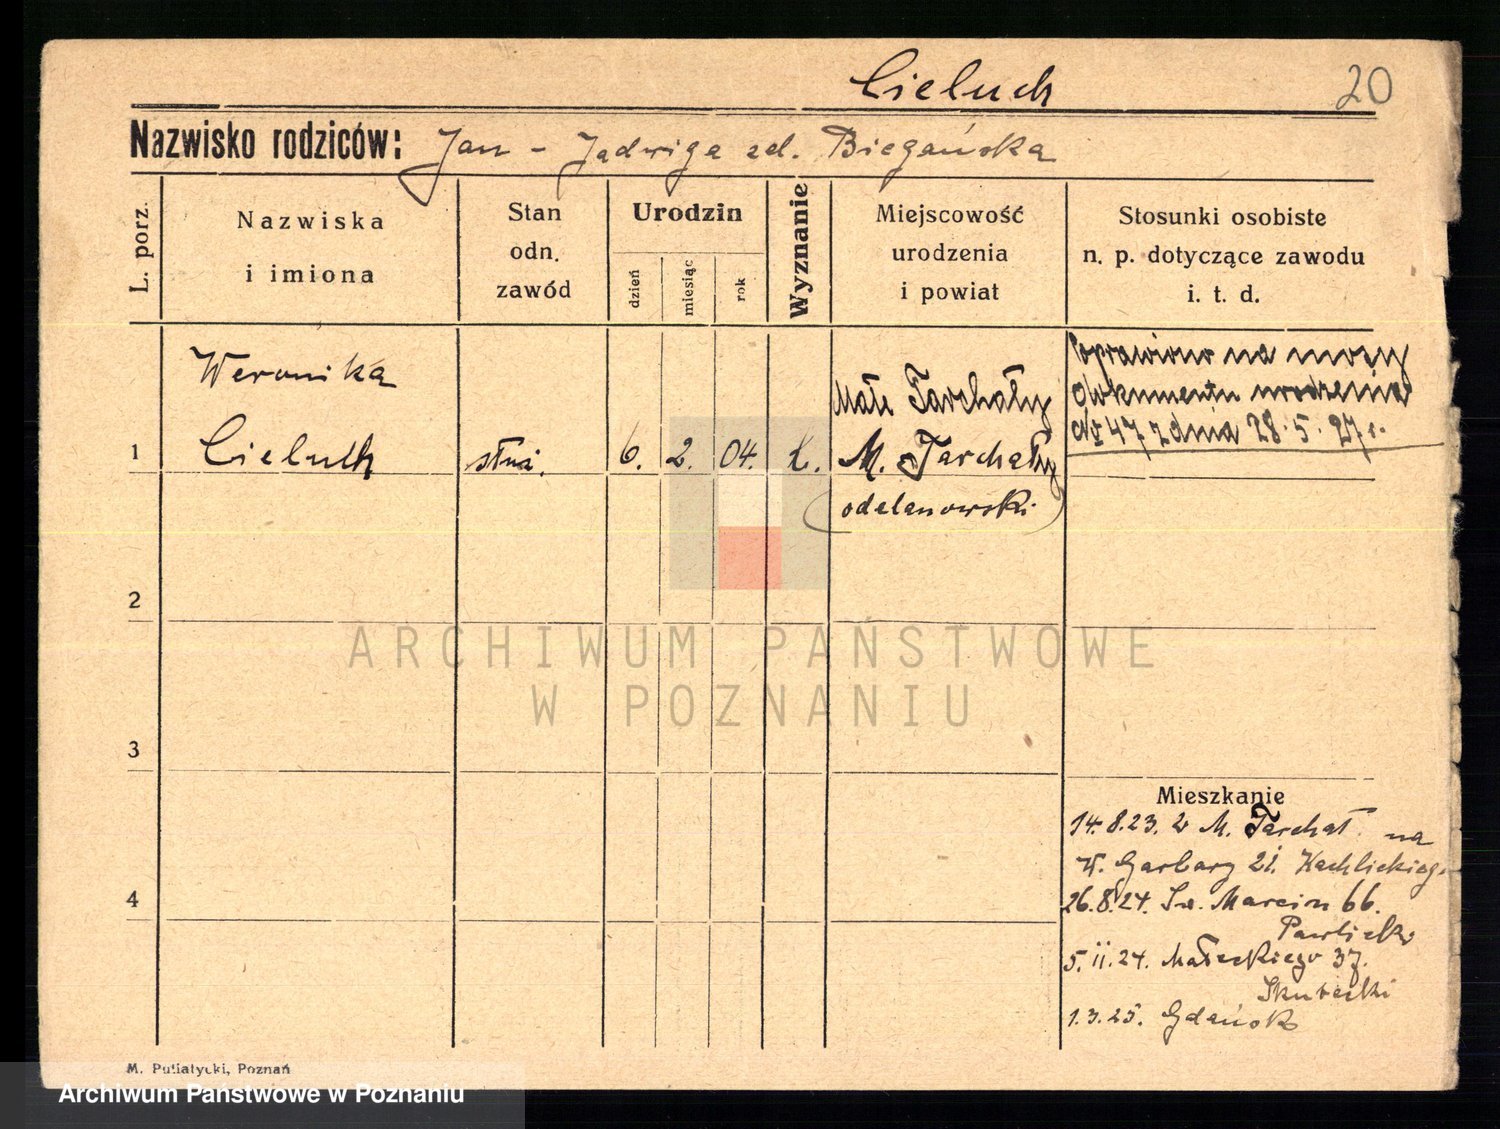 Cieluch
20
Nazwisko rodziców: Jan - Jadwiga zd. Biegańska
L. porz.
Nazwiska
i imiona
Stan
odn.
zawód
Urodzin
dzień
miesiąc
rok
Wyznanie
Miejscowość
urodzenia
i powiat
Stosunki osobiste
n. p. dotyczące zawodu
i. t. d.
Poprawiono na mocy
dokumentu urodzenia
№ 47 z dnia 28.5.27 r.
Weronika
Małe Tarchały
1
Cieluch
służ.
6.
2.
04.
k.
M. Tarchały
(odolanowski)
2
3
4
Mieszkanie
14.8.23. z M. Tarchał. na
W. Garbary 21.
26.8.24. Św. Marcin 66.
5.11.24. Małeckiego 37.
1.3.25. Gdańsk
ARCHIWUM PAŃSTWOWE
W POZNANIU
M. Putiatycki, Poznań
Archiwum Państwowe w Poznaniu